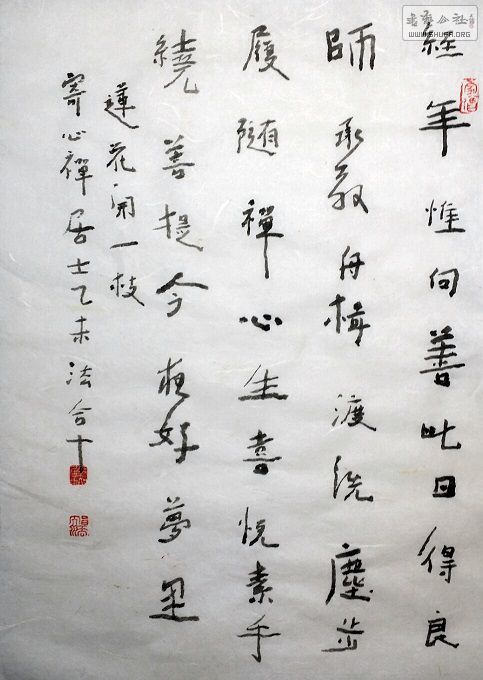 經年惟向善此日得良
師承教舟楫渡洗塵步
履随禪心生喜悦素手
繞菩提今夜好夢里
蓮花開一枝
寄心禪居士乙未法合十
书艺公社
WWW.SHUFA.ORG